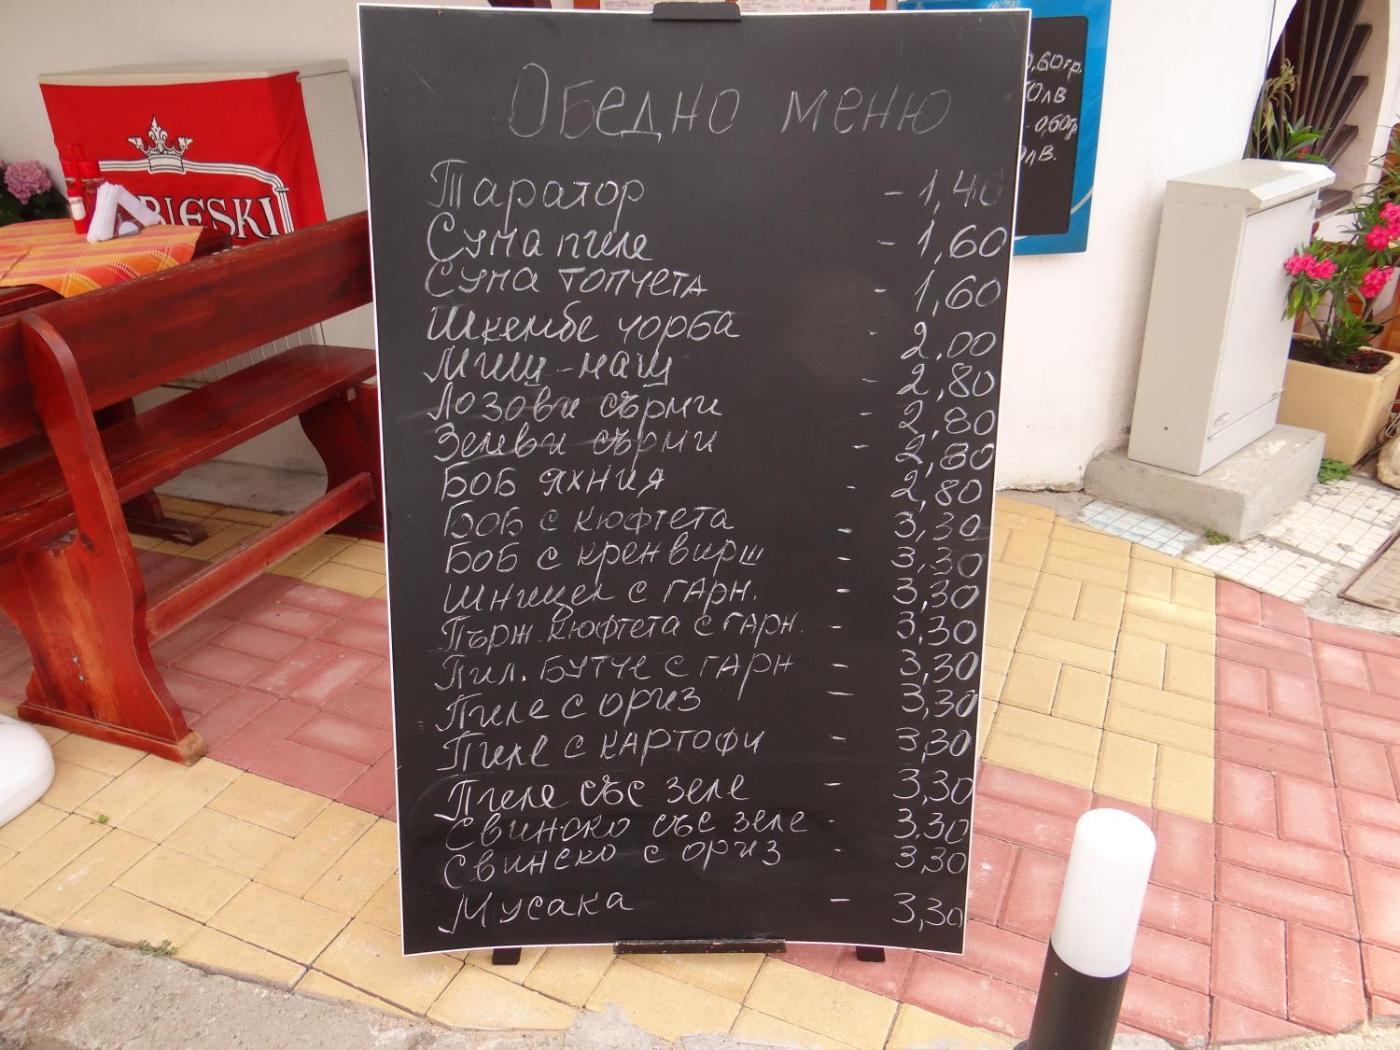 Обедно меню
Таратор - 1,40
Супа пиле - 1,60
Супа топчета - 1,60
Шкембе чорба - 2.00
Миш-маш - 2,80
Лозови сърми - 2,80
Зелеви сърми - 2,80
Боб яхния - 2,80
Боб с кюфтета - 3,30
Боб с кренвирш - 3,30
Шницел с гарн. - 3,30
Пърж. кюфтета с гарн. - 3,30
Пил. бутче с гарн - 3,30
Пиле с ориз - 3,30
Пиле с картофи - 3,30
Пиле със зеле - 3,30
Свинско със зеле - 3.30
Свинско с ориз - 3,30
Мусака - 3,30
BIESKI
0,60гр.
0лв
- 0,60гр
лв.